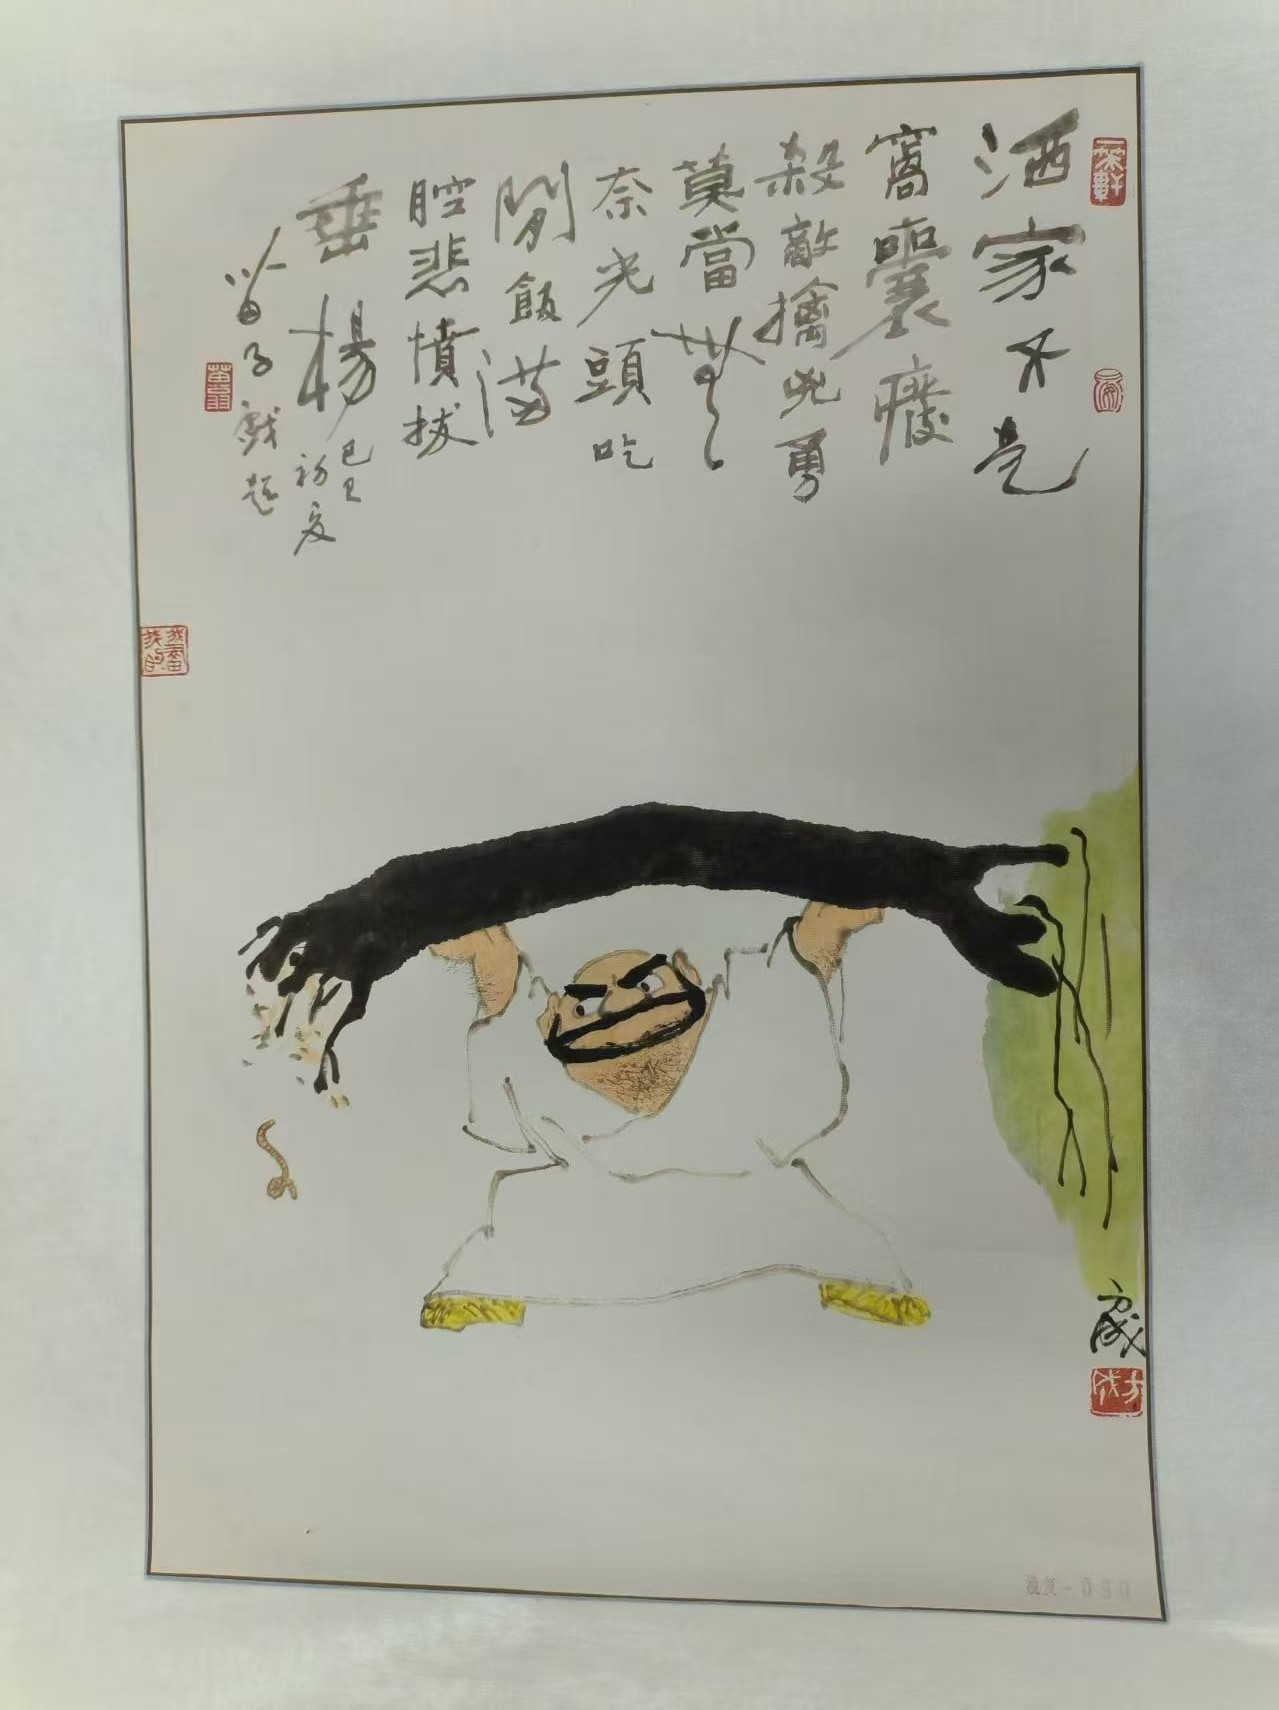 洒家不是
窩囊癈
殺敵擒兇勇
莫當無
奈光頭吃
閒飯滿
腔悲憤拔
垂楊
己巳
初夏
苗子戲題
方成